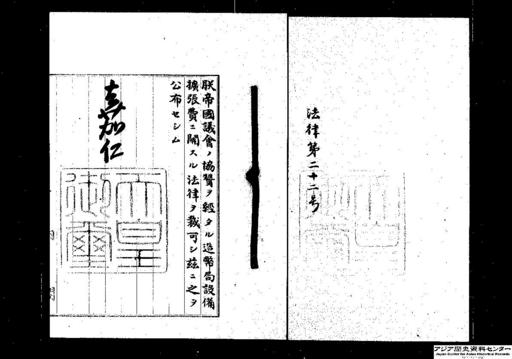 法律第二十二号
朕帝國議會ノ協賛ヲ經タル造幣局設備
擴張費ニ關スル法律ヲ裁可シ茲ニ之ヲ
公布セシム
嘉仁
天皇御璽
アジア歴史資料センター
Japan Center for Asian Historical Records